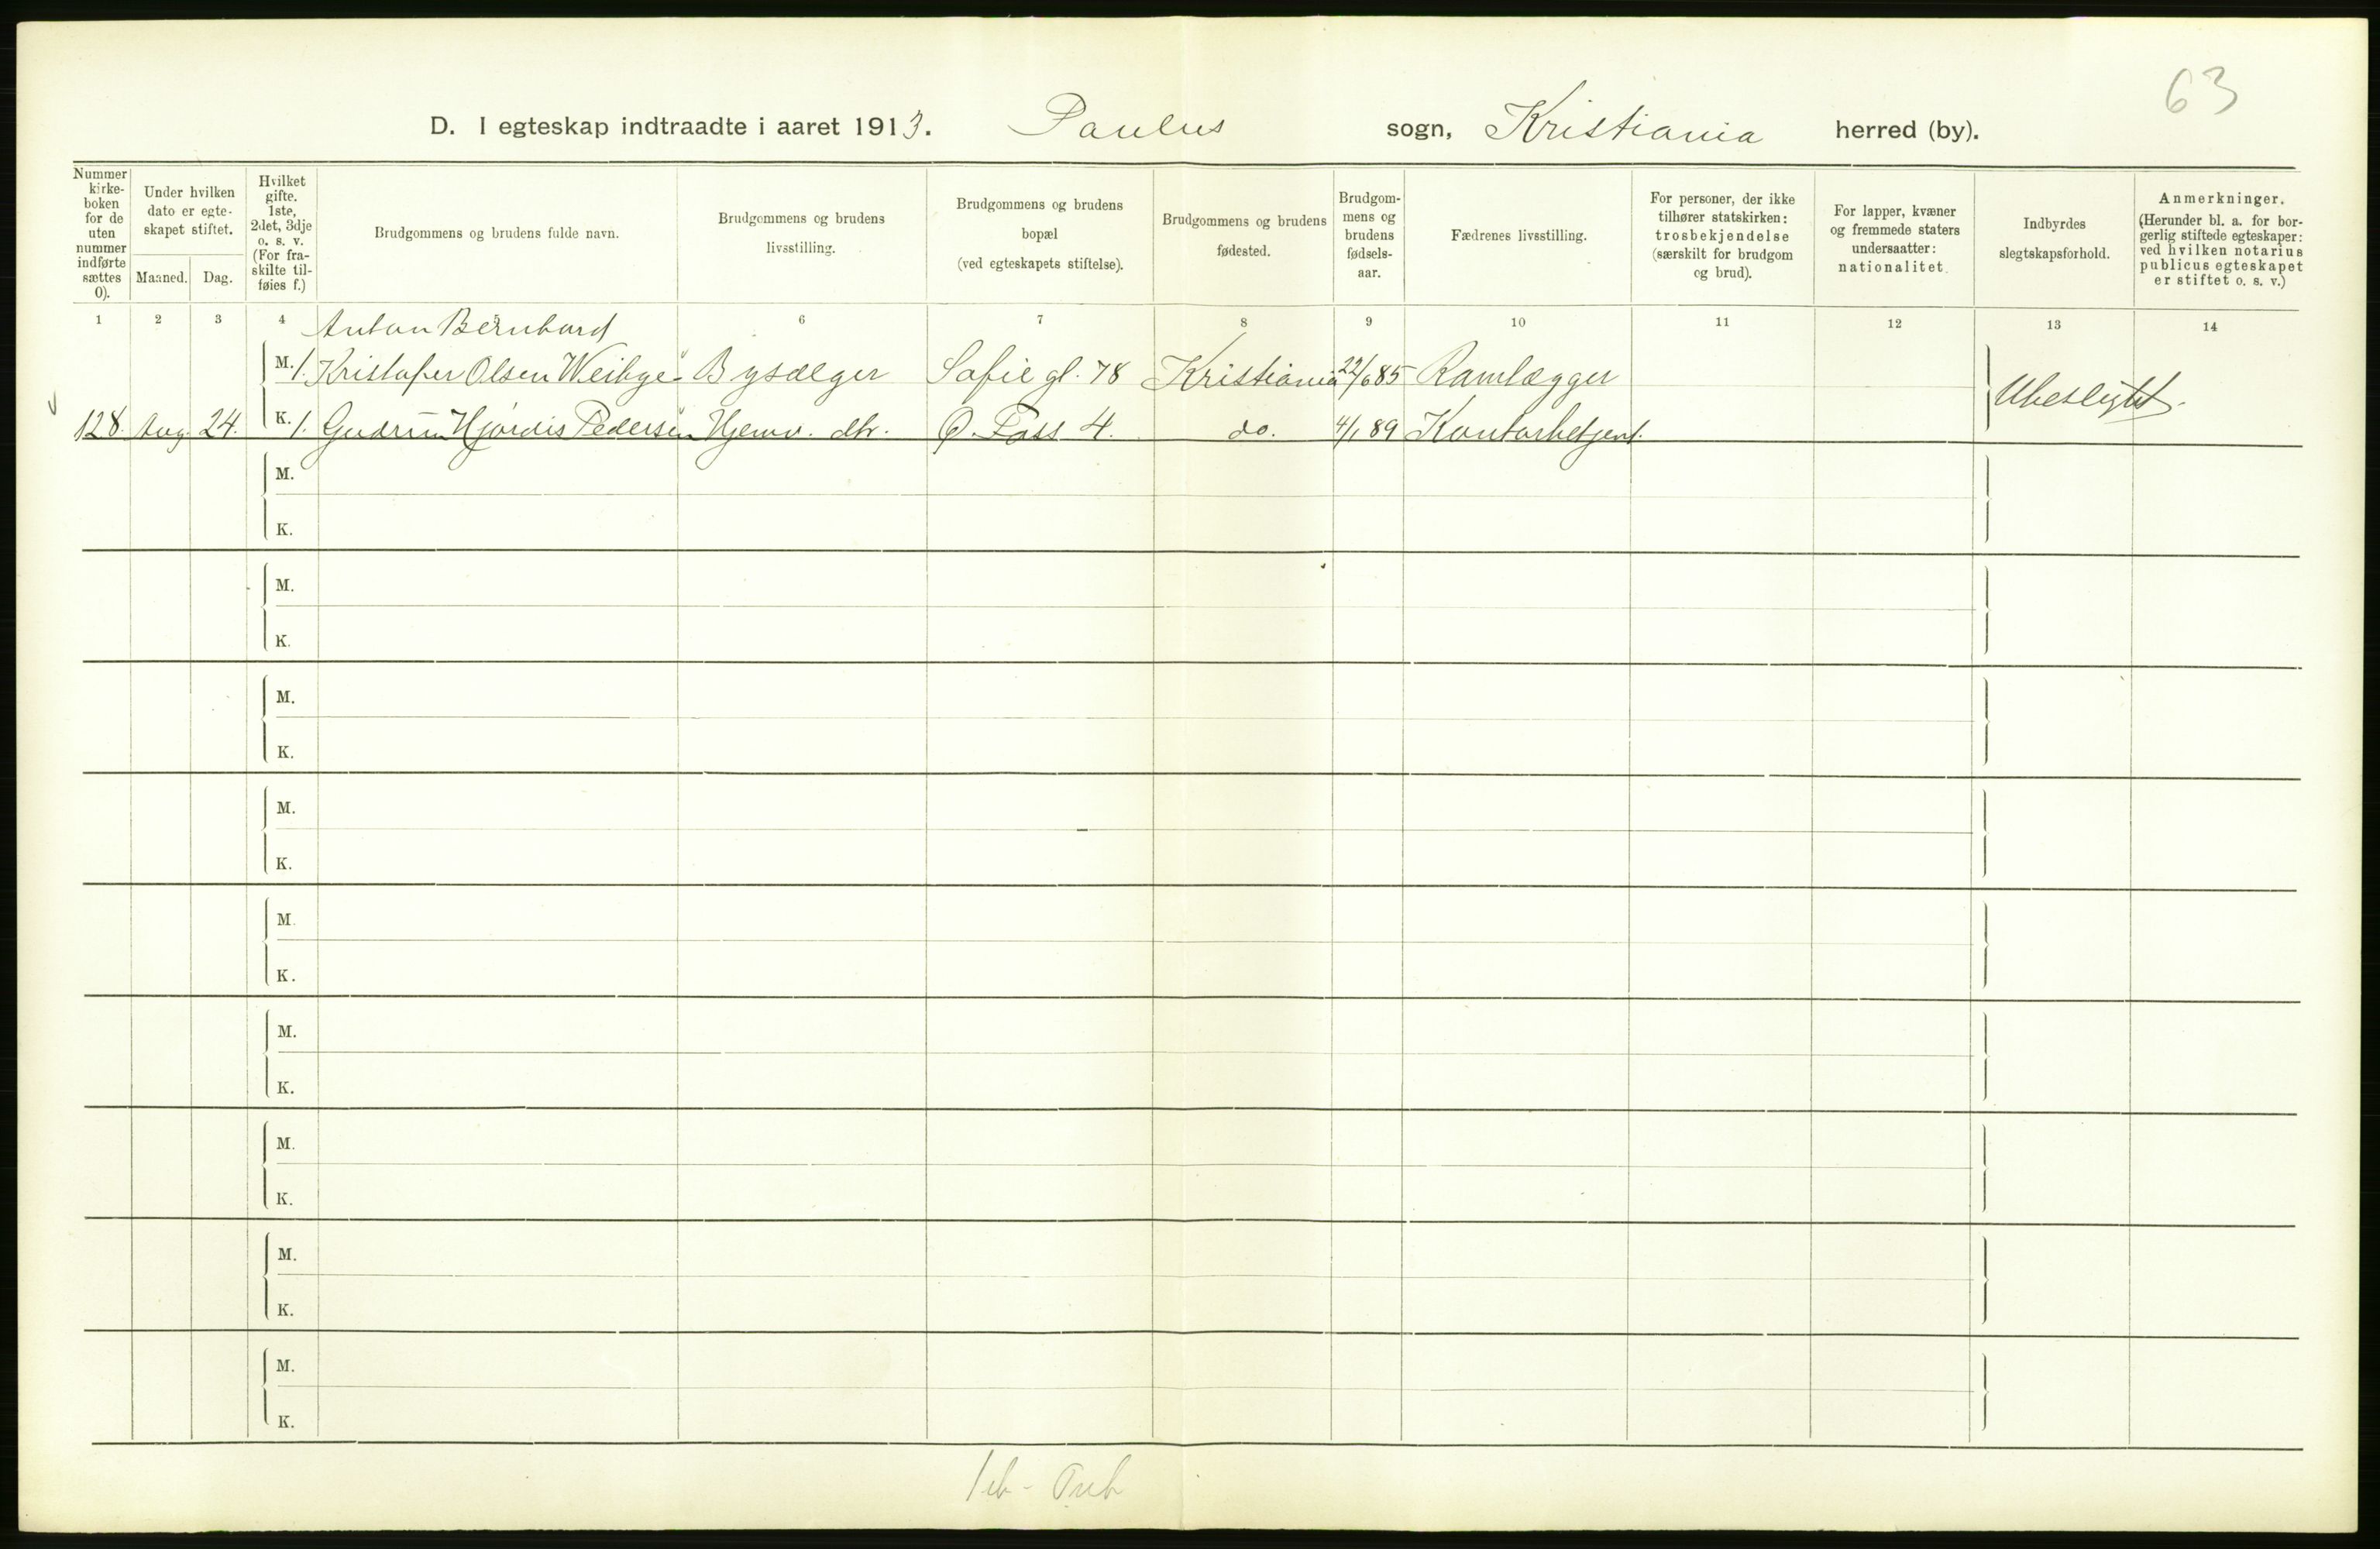 63
D. I egteskap indtraadte i aaret 1913. Paulus sogn, Kristiania herred (by).
Nummer kirke-boken for de uten nummer indførte sættes 0).
Under hvilken dato er egte-skapet stiftet.
Maaned. Dag.
Hvilket gifte. 1ste, 2det, 3dje o. s. v. (For fra-skilte til-føies f.)
Brudgommens og brudens fulde navn.
Brudgommens og brudens livsstilling.
Brudgommens og brudens bopæl (ved egteskapets stiftelse).
Brudgommens og brudens fødested.
Brudgom-mens og brudens fødsels-aar.
Fædrenes livsstilling.
For personer, der ikke tilhører statskirken: trosbekjendelse (særskilt for brudgom og brud).
For lapper, kvæner og fremmede staters undersaatter: nationalitet.
Indbyrdes slegtskapsforhold.
Anmerkninger. (Herunder bl. a. for bor-gerlig stiftede egteskaper: ved hvilken notarius publicus egteskapet er stiftet o. s. v.)
1 2 3 4 6 7 8 9 10 11 12 13 14
Anton Bernhard
M. 1. Kristofer Olsen Weibye Bysælger Sofie gt. 78 Kristiania 22/6 85 Ramlægger
Ubeslegtet.
128. Aug. 24. K. 1. Gudrun Hjördis Pedersen Hjemv. dtr. Ø. Foss 4. do. 4/1 89 Kontorbetjent.
M.
K.
M.
K.
M.
K.
M.
K.
M.
K.
M.
K.
M.
K.
M.
K.
M.
K.